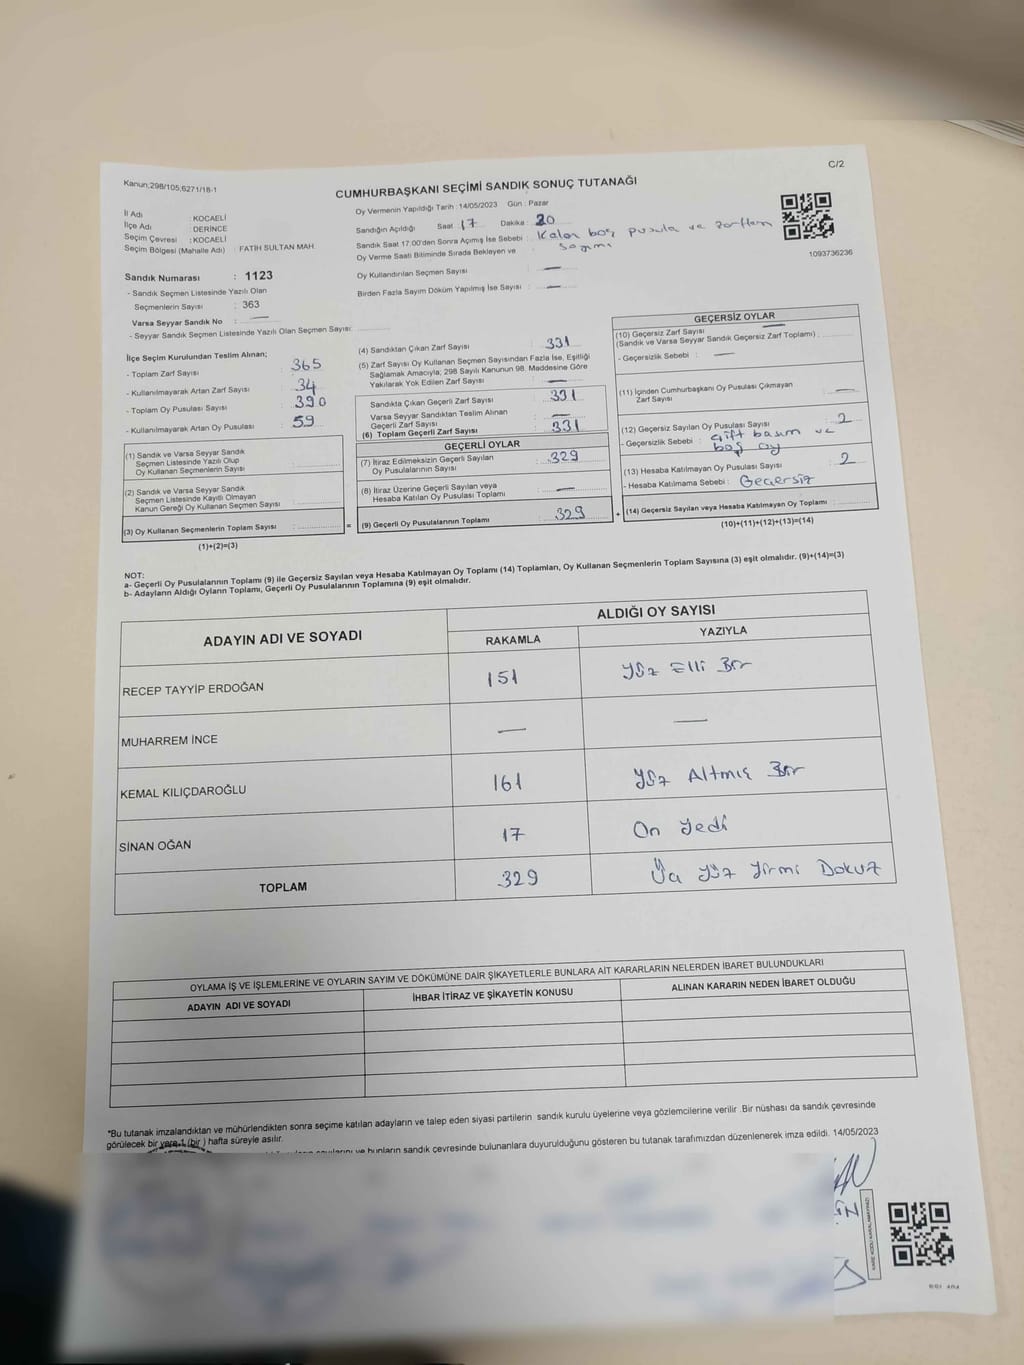 C/2
Kanun;298/105,6271/18-1
CUMHURBAŞKANI SEÇİMİ SANDIK SONUÇ TUTANAĞI
İl Adı : KOCAELİ
İlçe Adı : DERİNCE
Seçim Çevresi : KOCAELİ
Seçim Bölgesi (Mahalle Adı) : FATİH SULTAN MAH.
Sandık Numarası : 1123
- Sandık Seçmen Listesinde Yazılı Olan
Seçmenlerin Sayısı : 363
Varsa Seyyar Sandık No : —
- Seyyar Sandık Seçmen Listesinde Yazılı Olan Seçmen Sayısı:
Oy Vermenin Yapıldığı Tarih :14/05/2023 Gün : Pazar
Sandığın Açıldığı Saat 17 Dakika : 20
Sandık Saat 17:00'den Sonra Açımış İse Sebebi : Kalan boş pusula ve zarfların
Oy Verme Saati Bitiminde Sırada Bekleyen ve sayımı
Oy Kullandırılan Seçmen Sayısı —
Birden Fazla Sayım Döküm Yapılmış İse Sayısı : —
1093736236
İlçe Seçim Kurulundan Teslim Alınan;
- Toplam Zarf Sayısı : 365
- Kullanılmayarak Artan Zarf Sayısı : 34
- Toplam Oy Pusulası Sayısı : 390
- Kullanılmayarak Artan Oy Pusulası : 59
(1) Sandık ve Varsa Seyyar Sandık
Seçmen Listesinde Yazılı Olup
Oy Kullanan Seçmenlerin Sayısı :
(2) Sandık ve Varsa Seyyar Sandık
Seçmen Listesinde Kayıtlı Olmayan
Kanun Gereği Oy Kullanan Seçmen Sayısı :
(3) Oy Kullanan Seçmenlerin Toplam Sayısı : =
(1)+(2)=(3)
(4) Sandıktan Çıkan Zarf Sayısı : 331
(5) Zarf Sayısı Oy Kullanan Seçmen Sayısından Fazla İse, Eşitliği
Sağlamak Amacıyla; 298 Sayılı Kanunun 98. Maddesine Göre
Yakılarak Yok Edilen Zarf Sayısı : —
Sandıkta Çıkan Geçerli Zarf Sayısı : 331
Varsa Seyyar Sandıktan Teslim Alınan
Geçerli Zarf Sayısı : —
(6) Toplam Geçerli Zarf Sayısı : 331
GEÇERLİ OYLAR
(7) İtiraz Edilmeksizin Geçerli Sayılan
Oy Pusulalarının Sayısı : 329
(8) İtiraz Üzerine Geçerli Sayılan veya
Hesaba Katılan Oy Pusulası Toplamı : —
(9) Geçerli Oy Pusulalarının Toplamı : 329 +
GEÇERSİZ OYLAR
(10) Geçersiz Zarf Sayısı —
(Sandık ve Varsa Seyyar Sandık Geçersiz Zarf Toplamı) :
- Geçersizlik Sebebi : —
(11) İçinden Cumhurbaşkanı Oy Pusulası Çıkmayan
Zarf Sayısı : —
(12) Geçersiz Sayılan Oy Pusulası Sayısı : 2
- Geçersizlik Sebebi : çift basım ve
boş oy
(13) Hesaba Katılmayan Oy Pusulası Sayısı : 2
- Hesaba Katılmama Sebebi : Geçersiz
(14) Geçersiz Sayılan veya Hesaba Katılmayan Oy Toplamı :
(10)+(11)+(12)+(13)=(14)
NOT:
a- Geçerli Oy Pusulalarının Toplamı (9) ile Geçersiz Sayılan veya Hesaba Katılmayan Oy Toplamı (14) Toplamları, Oy Kullanan Seçmenlerin Toplam Sayısına (3) eşit olmalıdır. (9)+(14)=(3)
b- Adayların Aldığı Oyların Toplamı, Geçerli Oy Pusulalarının Toplamına (9) eşit olmalıdır.
ADAYIN ADI VE SOYADI ALDIĞI OY SAYISI
RAKAMLA YAZIYLA
RECEP TAYYİP ERDOĞAN 151 Yüz Elli Bir
MUHARREM İNCE — —
KEMAL KILIÇDAROĞLU 161 Yüz Altmış Bir
SİNAN OĞAN 17 On Yedi
TOPLAM 329 Üç Yüz Yirmi Dokuz
OYLAMA İŞ VE İŞLEMLERİNE VE OYLARIN SAYIM VE DÖKÜMÜNE DAİR ŞİKAYETLERLE BUNLARA AİT KARARLARIN NELERDEN İBARET BULUNDUKLARI
ADAYIN ADI VE SOYADI İHBAR İTİRAZ VE ŞİKAYETİN KONUSU ALINAN KARARIN NEDEN İBARET OLDUĞU
*Bu tutanak imzalandıktan ve mühürlendikten sonra seçime katılan adayların ve talep eden siyasi partilerin sandık kurulu üyelerine veya gözlemcilerine verilir .Bir nüshası da sandık çevresinde
görülecek bir yere 1 (bir ) hafta süreyle asılır.
ve bunların sandık çevresinde bulunanlara duyurulduğunu gösteren bu tutanak tarafımızdan düzenlenerek imza edildi. 14/05/2023